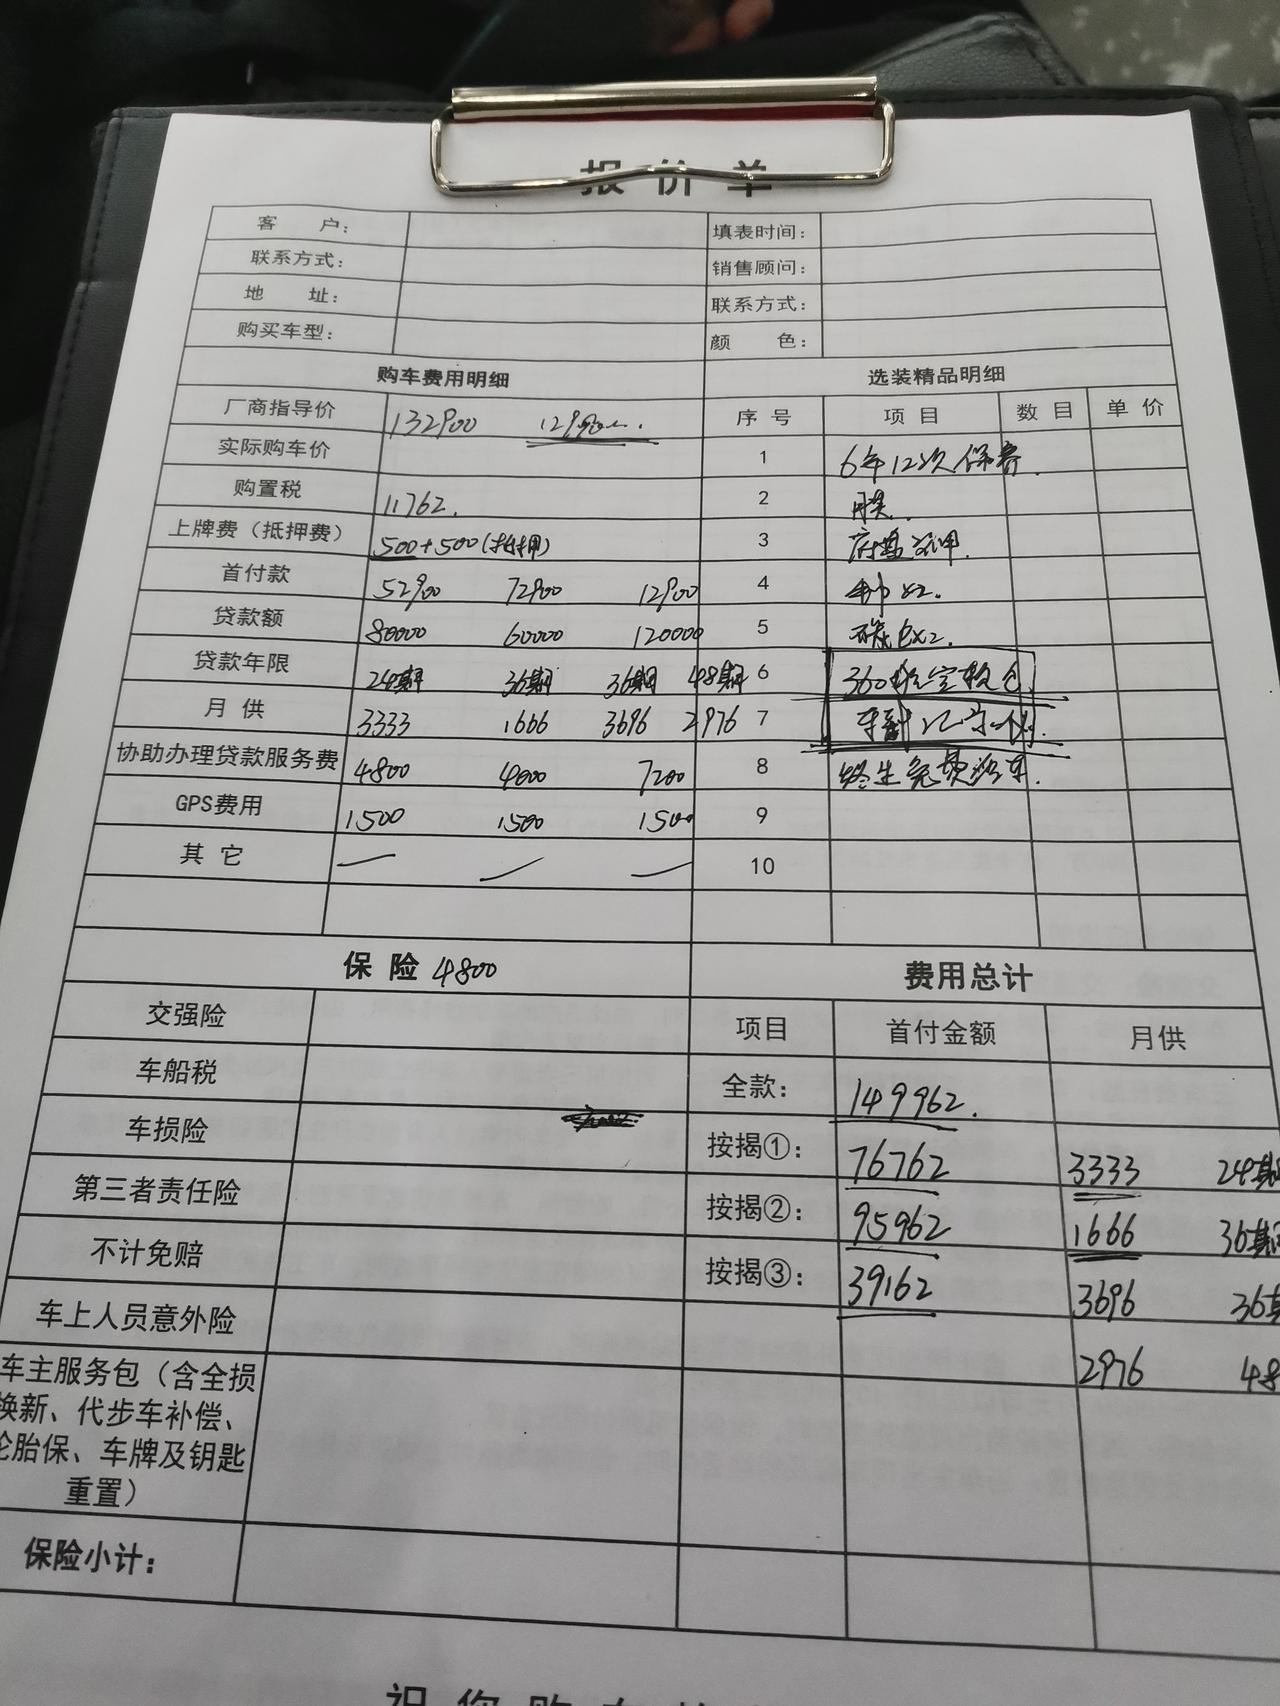 报价单
客 户： 填表时间：
联系方式： 销售顾问：
地 址： 联系方式：
购买车型： 颜 色：
购车费用明细 选装精品明细
厂商指导价 132900 序号 项目 数目 单价
实际购车价 1 6年12次保养.
购置税 11762. 2 膜.
上牌费（抵押费） 500+500(抵押) 3
首付款 52900 72900 12900 4
贷款额 80000 60000 120000 5
贷款年限 24期 36期 36期 48期 6 360
月供 3333 1666 3696 2976 7
协助办理贷款服务费 4800 4000 7200 8 终生免费洗车.
GPS费用 1500 1500 1500 9
其它 — — — 10
保险 4800 费用总计
交强险 项目 首付金额 月供
车船税 全款： 149962.
车损险 按揭①： 76762 3333 24期
第三者责任险 按揭②： 95962 1666 36期
不计免赔 按揭③： 39162 3696 36期
车上人员意外险 2976 48
车主服务包（含全损
换新、代步车补偿、
轮胎保、车牌及钥匙
重置）
保险小计：
祝您购车